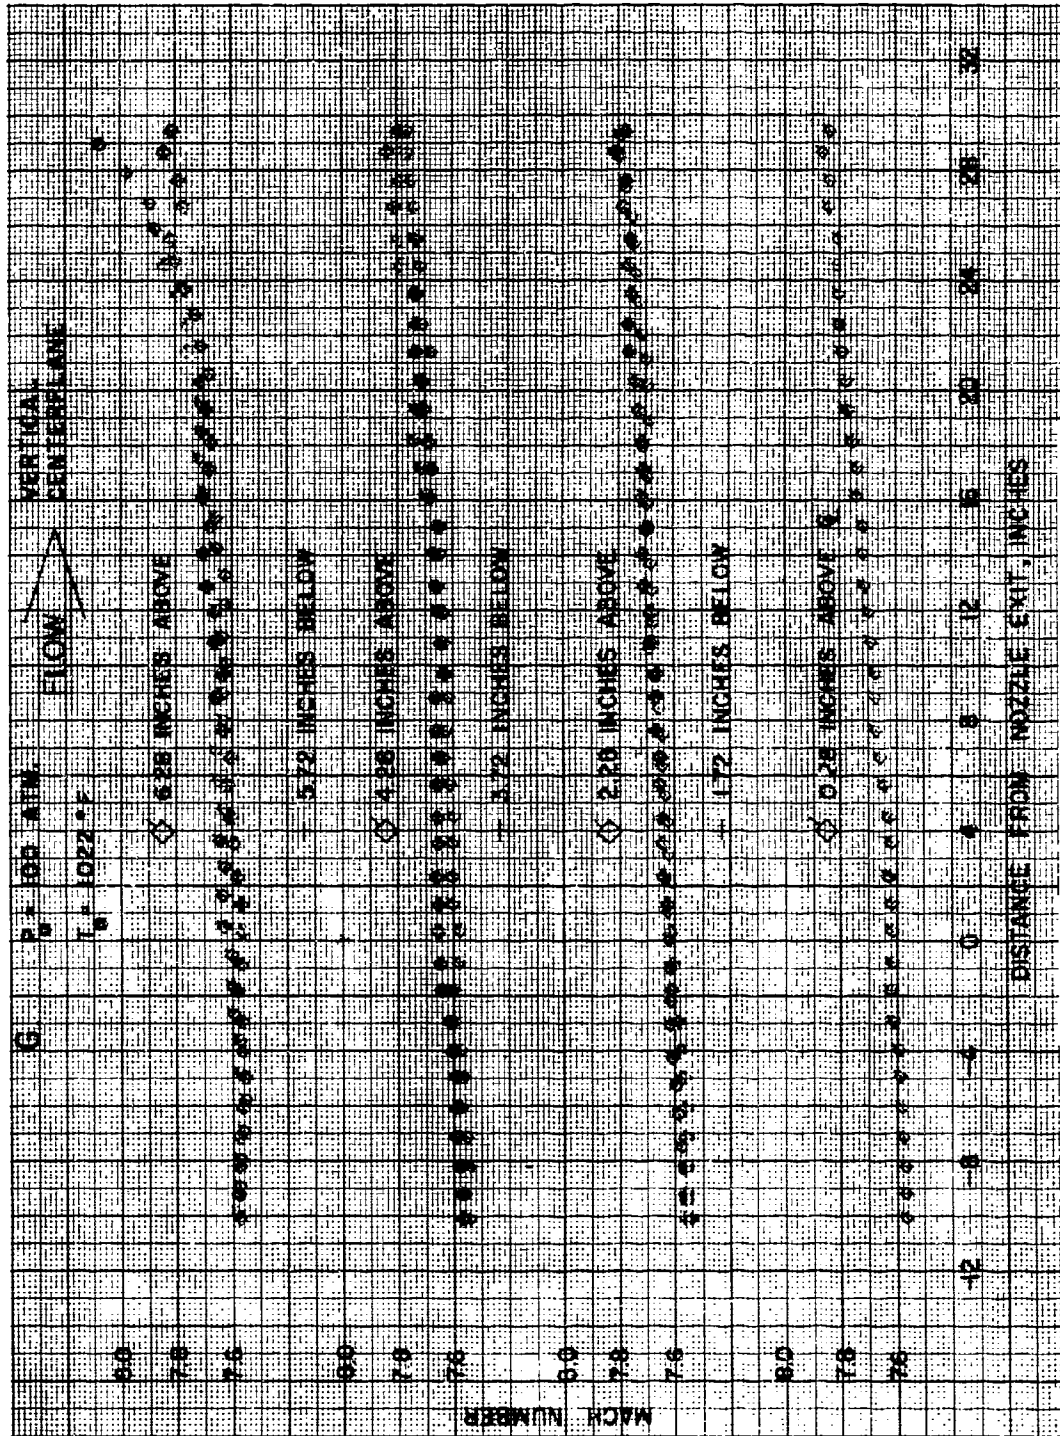 G.
P₀ = 100 ATM.
T₀ = 1022 °F
FLOW
VERTICAL
CENTERPLANE
6.28 INCHES ABOVE
5.72 INCHES BELOW
4.28 INCHES ABOVE
3.72 INCHES BELOW
2.28 INCHES ABOVE
1.72 INCHES BELOW
0.28 INCHES ABOVE ℄
MACH NUMBER
8.0
7.8
7.6
8.0
7.8
7.6
8.0
7.8
7.6
8.0
7.8
7.6
-12 -8 -4 0 4 8 12 16 20 24 28 32
DISTANCE FROM NOZZLE EXIT, INCHES